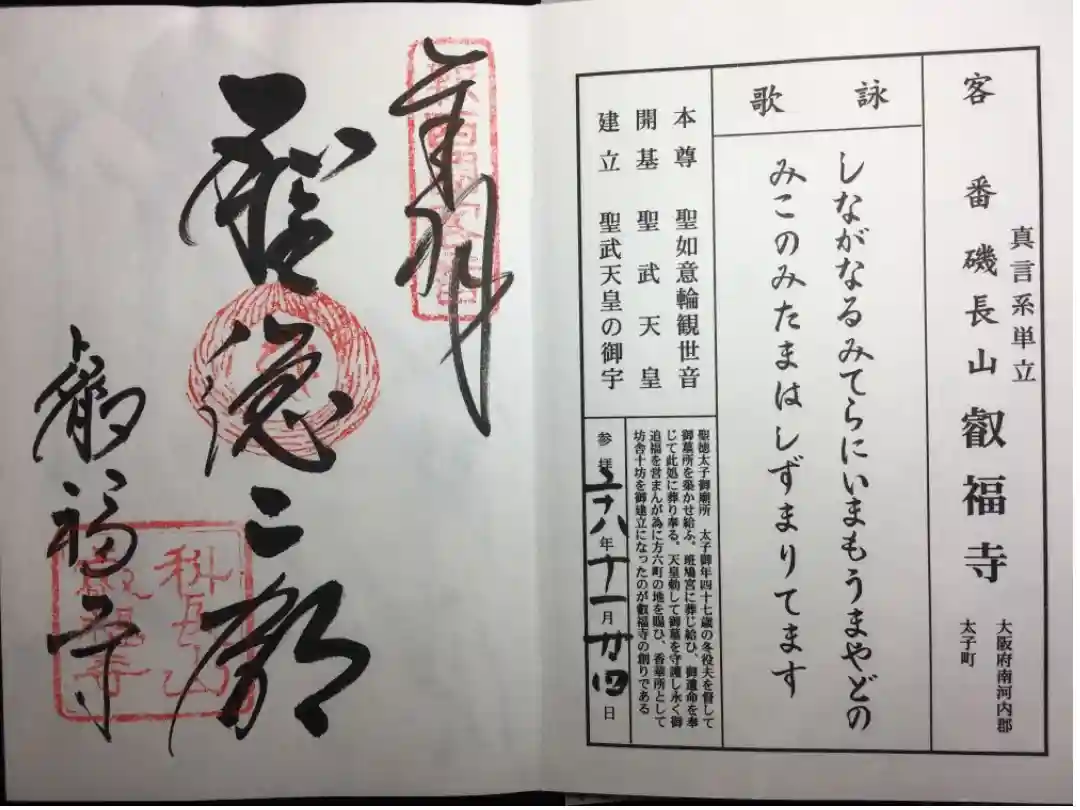 真言系単立
客番 磯長山 叡福寺
大阪府南河内郡
太子町
詠歌
しながなるみてらにいまもうまやどの
みこのみたまはしずまりてます
本尊 聖如意輪観世音
開基 聖武天皇
建立 聖武天皇の御宇
聖徳太子御廟所 太子御年四十七歳の冬役夫を督して
御墓所を築かせ給ふ、斑鳩宮に葬じ給ひ、御遺命を奉
じて此処に葬り奉る。天皇勅して御墓を守護し永く御
追福を営まんが為に方六町の地を賜ひ、香華所として
坊舎十坊を御建立になったのが叡福寺の創りである
参拝 二十八年十一月廿四日
奉拝
聖徳二廟
叡福寺
科長山
叡福寺